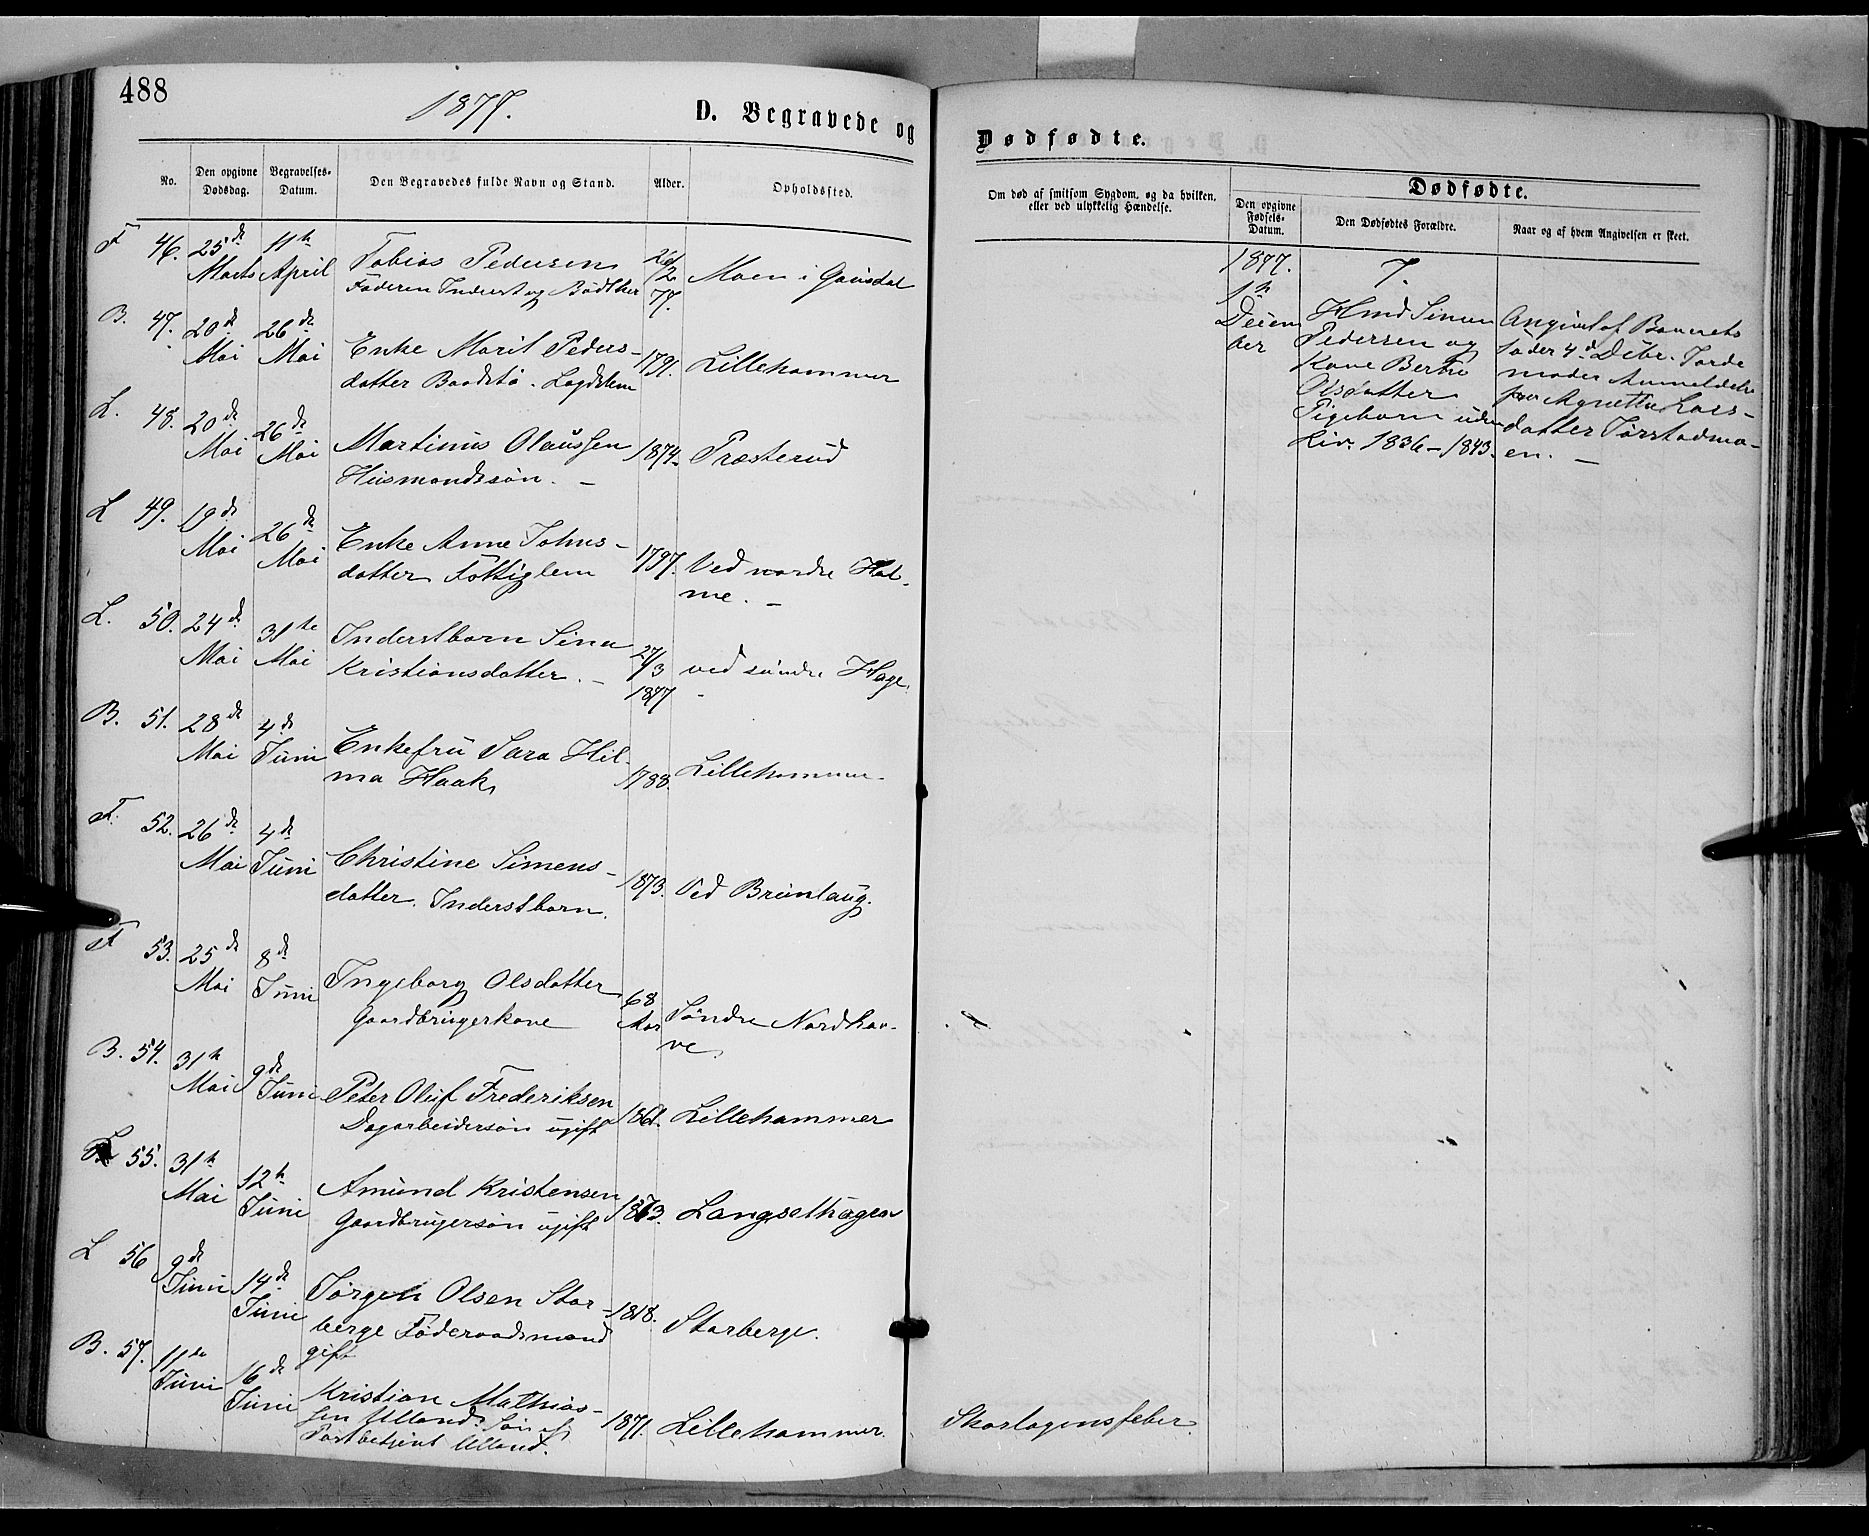 488
1877.
D. Begravede og
No.
Den opgivne Dødsdag.
Begravelses-Datum.
Den Begravedes fulde Navn og Stand.
Alder.
Opholdssted.
F 46. 25de Marts 11te April
Tobias Pedersen
Faderen Inderst og Bødtker
26/2 77.
Moen i Gausdal
B. 47. 20de Mai 26de Mai
Enke Marit Peders-
datter Baadstø. Lægdslem
1791.
Lillehammer
L. 48. 20de Mai 26de Mai
Martinus Olaussen
Husmandssøn. -
1874.
Præsterud
L 49. 19de Mai 26de Mai
Enke Anne Johns-
datter Fattiglem
1797.
Ved nordre Hol-
me. -
L. 50. 24de Mai 31te Mai
Inderstbarn Sina
Kristiansdatter. -
27/3 1877
ved søndre Hage.
B. 51. 28de Mai 4de Juni
Enkefru Sara Hil-
ma Haak
1788.
Lillehammer
F. 52. 26de Mai 4de Juni
Christine Simens-
datter. Inderstbarn.
1873.
Ved Brunlaug.
F 53. 25de Mai 8de Juni
Ingeborg Olsdatter
Gaardbrugerkone
68 Aar
Søndre Nordho-
ve
B. 54. 31te Mai 9de Juni
Peter Oluf Frederiksen
Dagarbeidersøn ugift
1861.
Lillehammer
L 55. 31te Mai 12te Juni
Amund Kristensen
Gaardbrugersøn ugift
1863.
Langsethagen
L 56 9de Juni 14de Juni
Jørgen Olsen Stor-
berge Føderaadsmand
gift
1818.
Storberge.
B. 57. 11te Juni 16de Juni
Kristian Mathias-
sen Ulland. Søn af
Postbetjent Ulland.
1871.
Lillehammer.
Dødfødte.
Om død af smitsom Sygdom, og da hvilken,
eller ved ulykkelig Hændelse.
Dødfødte.
Den opgivne Fødsels-Datum.
Den Dødfødtes Forældre.
Naar og af hvem Angivelsen er skeet.
1877.
7.
1te Decem
ber
Hmd Simen
Pedersen og
Kone Berthe
Olsdatter
Pigebarn uden
Liv. 1836-1843.
Angivet af Barnets
fader 4de Debr. Jorde
moder Anmeldelse
fra Agnethe Lars-
datter Jørstadmo-
en. -
Skarlagensfeber